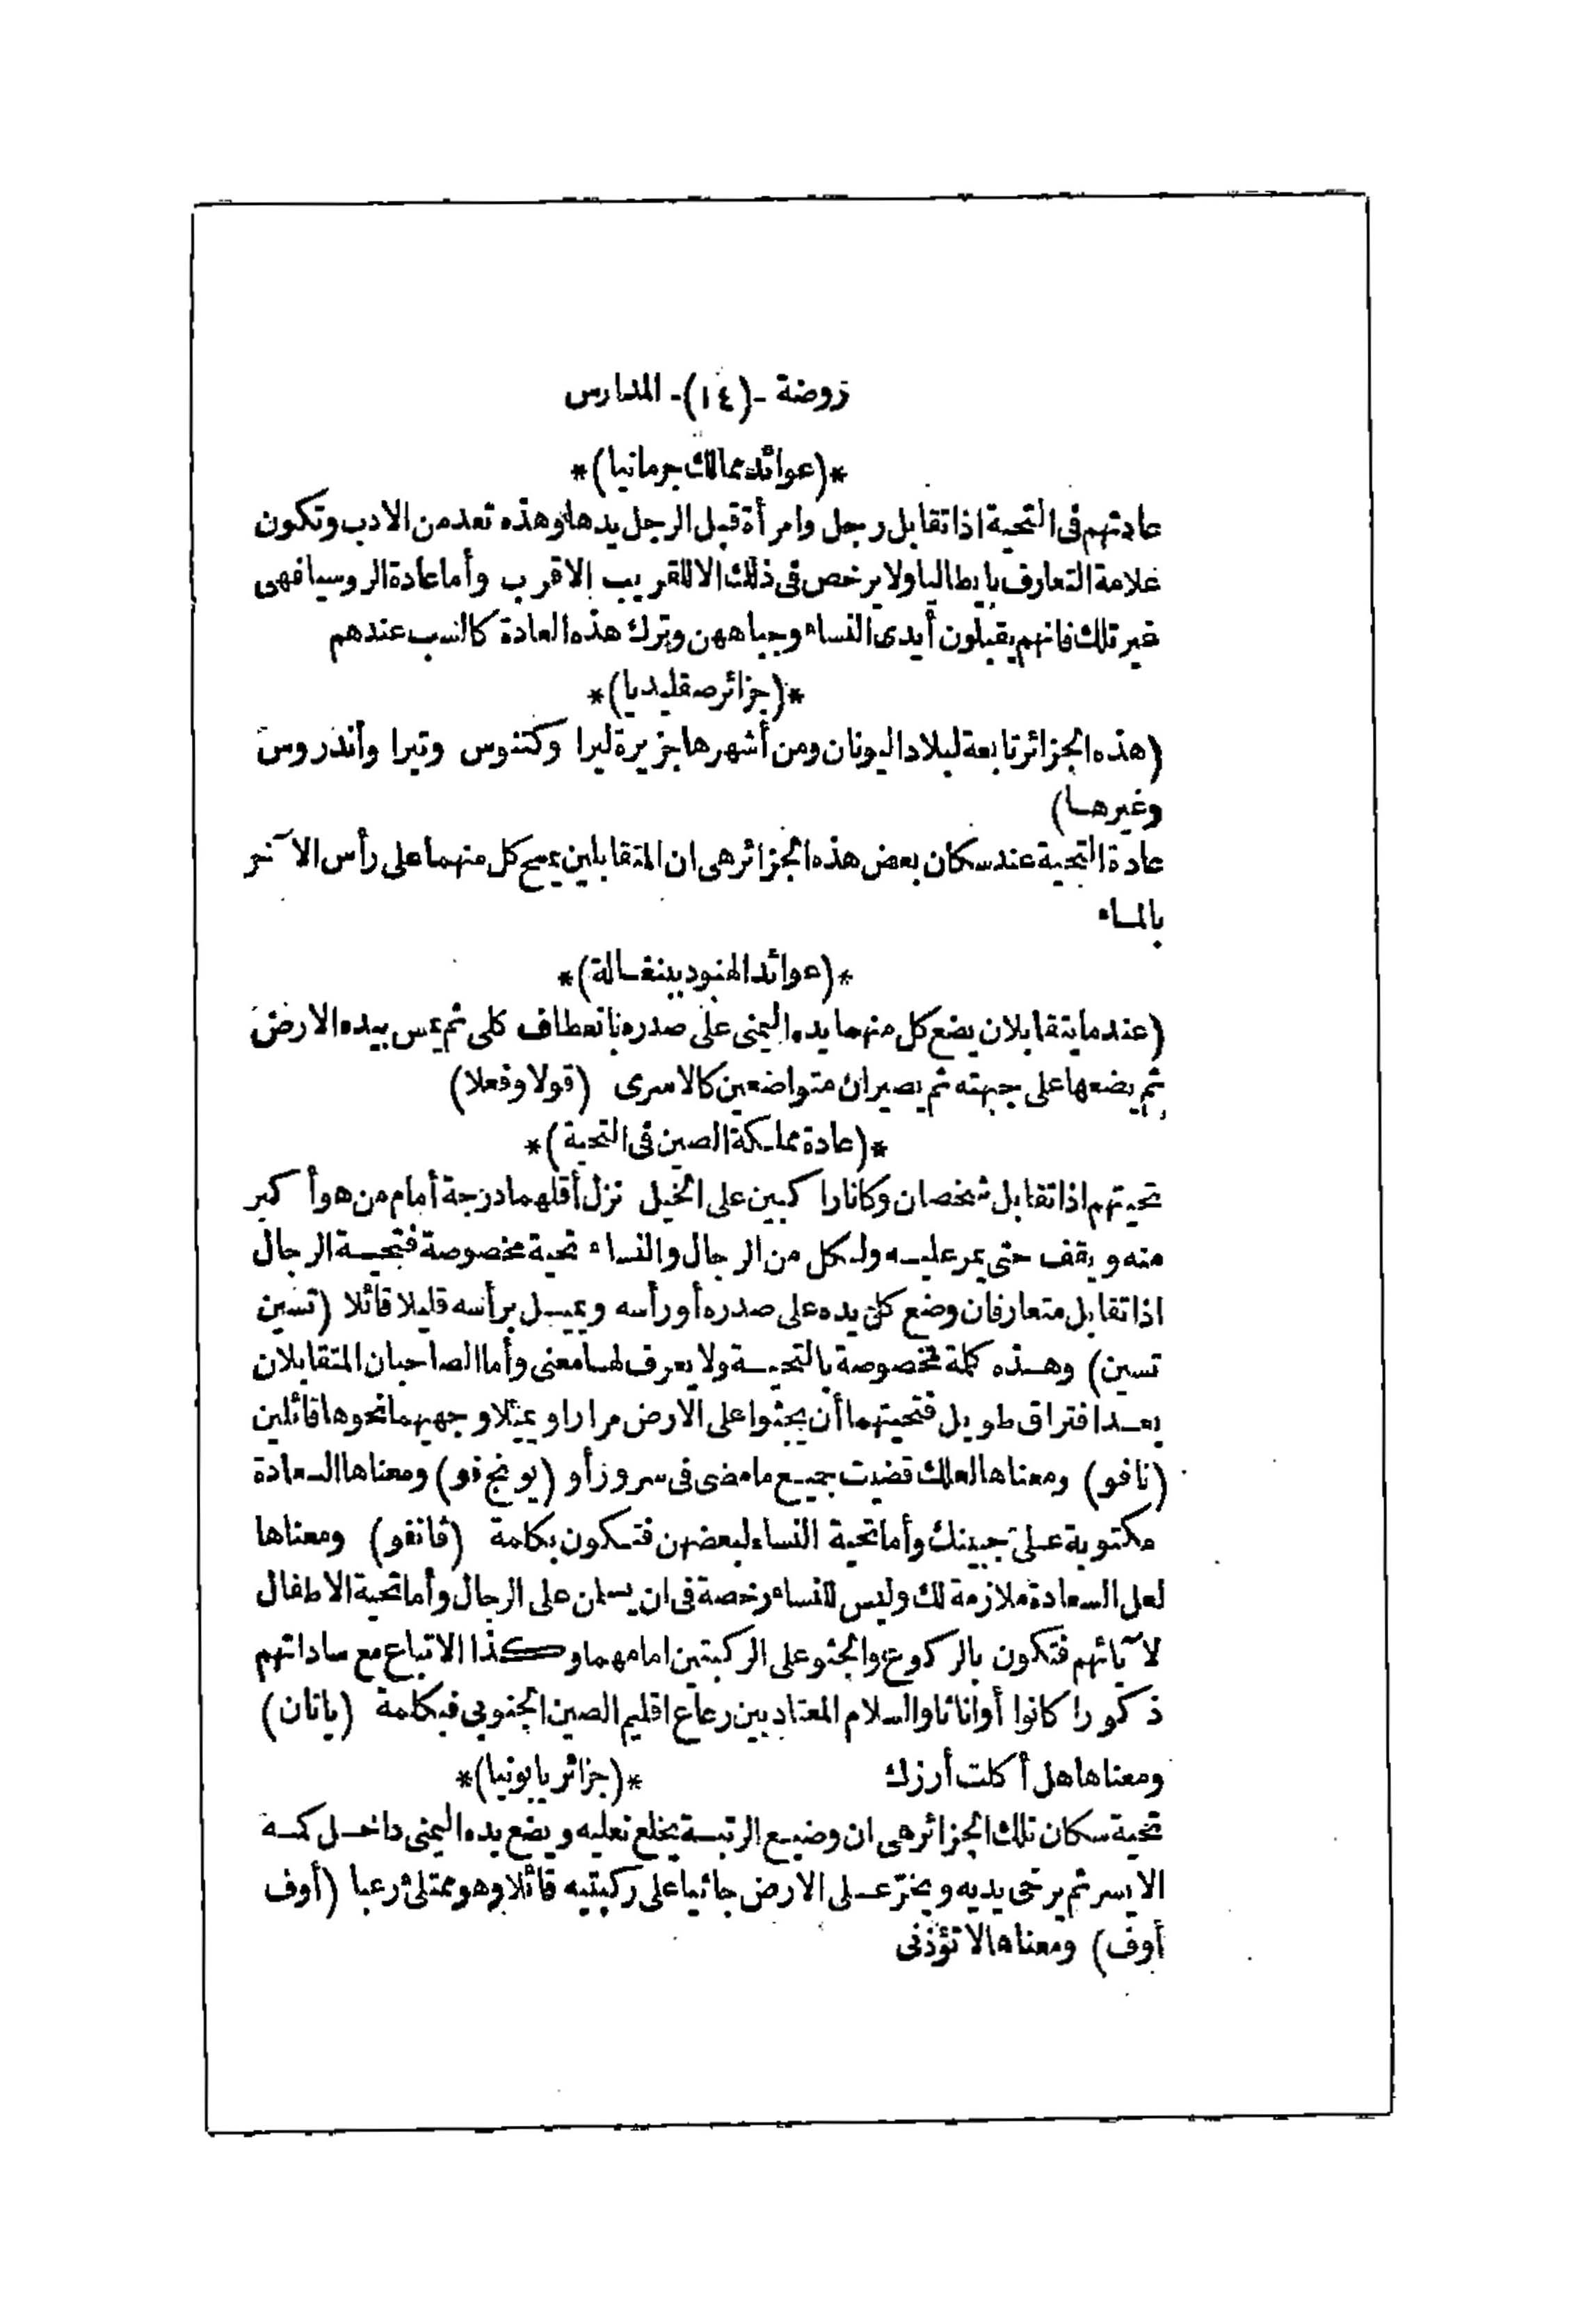 روضة -(١٤)- المدارس
*(عوائد ممالك جرمانيا)*
عادتهم فى التحية اذا تقابل رجل وامرأة قبل الرجل يدها وهذه تعد من الادب وتكون
علامة التعارف بايطاليا ولا يرخص فى ذلك الا للقريب الاقرب وأما عادة الروسيا فهى
غير تلك فانهم يقبلون أيدى النساء وجباههن وترك هذه العادة كالسب عندهم
*(جزائر صقليديا)*
(هذه الجزائر تابعة لبلاد اليونان ومن أشهرها جزيرة ليرا وكتنوس وتيرا وأندروس
وغيرها)
عادة التحية عند سكان بعض هذه الجزائر هى ان المتقابلين يمسح كل منهما على رأس الآخر
بالماء
*(عوائد الهنود ببنغالة)*
(عند ما يتقابلان يضع كل منهما يده اليمنى على صدره بانعطاف كلى ثم يمس بيده الارض
ثم يضعها على جبهته ثم يصيران متواضعين كالاسرى (قولا وفعلا)
*(عادة مملكة الصين فى التحية)*
تحيتهم اذا تقابل شخصان وكانا راكبين على الخيل نزل أقلهما درجة أمام من هو أكبر
منه ويقف حتى يمر عليه ولكل من الرجال والنساء تحية مخصوصة فتحية الرجال
اذا تقابل متعارفان وضع كل يده على صدره أو رأسه ويميل برأسه قليلا قائلا (تسين
تسين) وهذه كلمة مخصوصة بالتحية ولا يعرف لها معنى وأما الصاحبان المتقابلان
بعد افتراق طويل فتحيتهما أن يجثوا على الارض مرارا ويميلا وجهيهما نحوها قائلين
(نافو) ومعناها لعلك قضيت جميع ما مضى فى سرور أو (يونج فو) ومعناها السعادة
مكتوبة على جبينك وأما تحية النساء لبعضهن فتكون بكلمة (فانفو) ومعناها
لعل السعادة ملازمة لك وليس للنساء رخصة فى ان يسلمن على الرجال وأما تحية الاطفال
لآبائهم فتكون بالركوع والجثو على الركبتين امامهما وكذا الاتباع مع ساداتهم
ذكورا كانوا أو اناثا والسلام المعتاد بين رعاع اقليم الصين الجنوبى فبكلمة (ياتان)
ومعناها هل أكلت أرزك *(جزائر يابونيا)*
تحية سكان تلك الجزائر هى ان وضيع الرتبة يخلع نعليه ويضع يده اليمنى داخل كمه
الايسر ثم يرخى يديه ويخرّ على الارض جاثيا على ركبتيه قائلا وهو ممتلئ رعبا (أوف
أوف) ومعناها لا تؤذنى